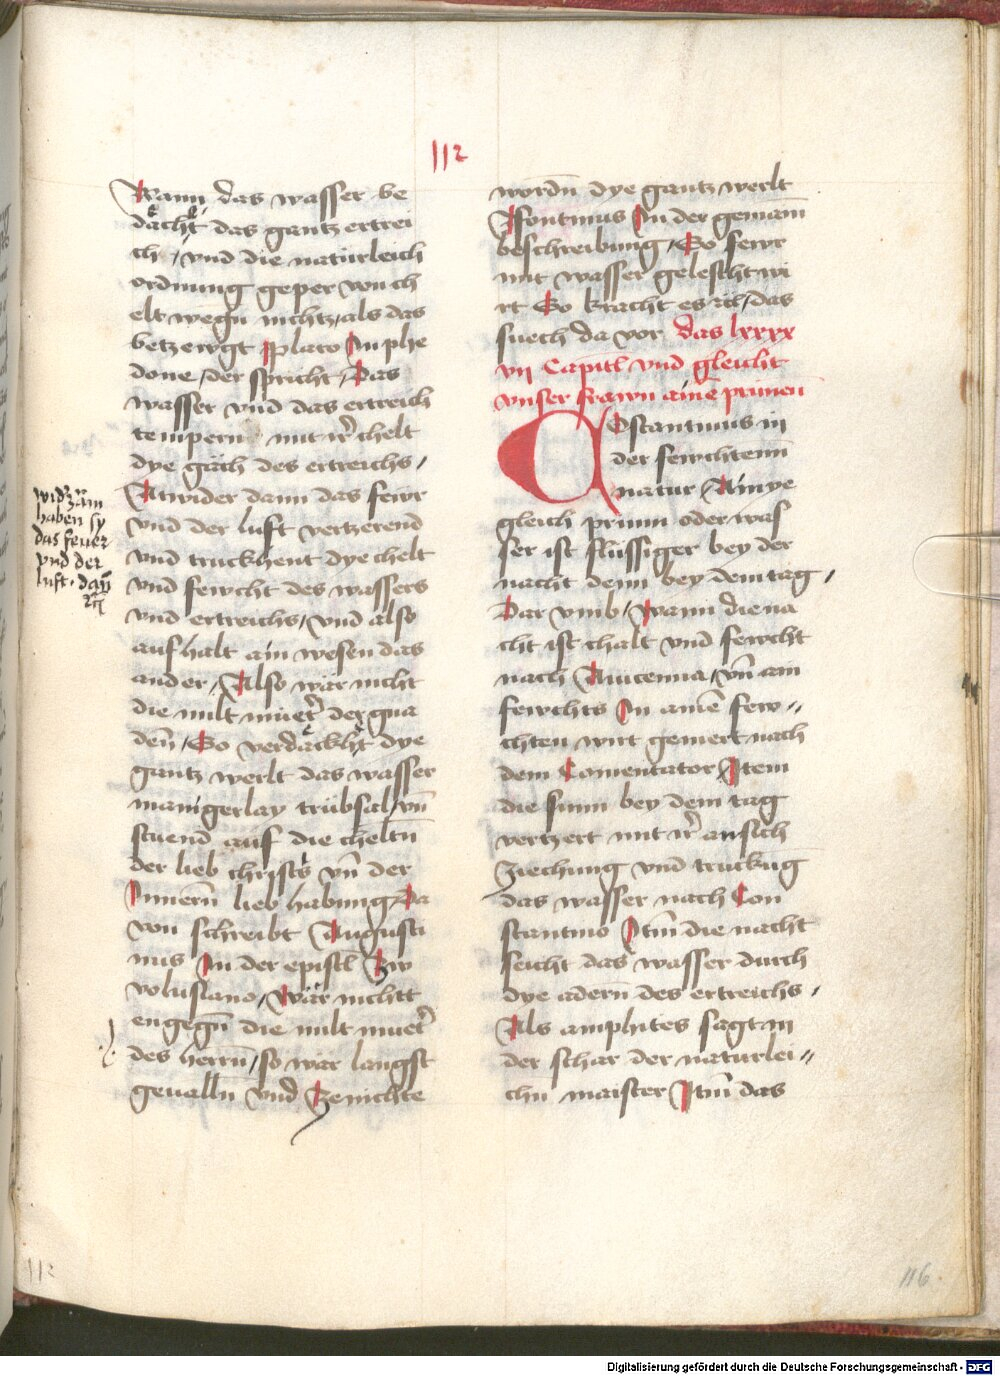 112
Wann das wasser be
dächt das gantz ertrei
ch / vnd die natürleich
ordnung geper von ch
elt wegn nichtz / als das
betzewgt Plato In phe
done / der spricht / Das
wasser vnd das ertreich
temperin mit ir̄ chelt
dye gäch des ertreichs /
Awider dann das fewr
vnd der luft vertzerend
vnd truckhent dye chelt
vnd fewcht des wassers
vnd ertreichs / vnd also
aufhalt ain wesen das
ander / Also wär nicht
die milt muet̄ der gna
den̄ / So verdäckht dye
gantz werlt das wasser
manigerlay trübsal / vn̄
stuend auf die cheltn̄
der lieb christs vn̄ der
Innern̄ lieb habung / Da
von schreibt Augusti
nus In der epistl Zw
volusiano / Wär nichtt
engegn̄ die milt muet̄
des herrn̄ / so wär langst
geualln̄ vnd Zenichte
widzäm
haben sy
das feuer
vnd der
luft · dan̄
wordn̄ dye gantz werlt
Isontinus In der gemain̄
beschreibung / So fewr
mit wasser gelescht wi
rt So kracht es rc / das
suech da vor das lxxxx
vij Capitl vnd gleicht
vnser frawn aine prunen̄
Costantinus in
der fewchtenn
natur / Ainye
gleich prunn oder was
ser ist flüssiger bey der
nacht denn bey dem tag /
Dar vmb / Wann die na
cht ist chalt vnd fewcht
nach Auicenna / vn̄ ain
fewchts In aine few //
chten wirt gemert nach
dem Comentator / Item
die sunn bey dem tag
vertzert mit ir̄ ansich
Ziechung vnd truckuḡ
das wasser nach Con
stantino Itm̄ die nacht
seicht das wasser durch
dye adern̄ des ertreichs /
Als amphites sagt in
der schar der naturlei //
chn maister Itm̄ das
112
116
Digitalisierung gefördert durch die Deutsche Forschungsgemeinschaft - DFG